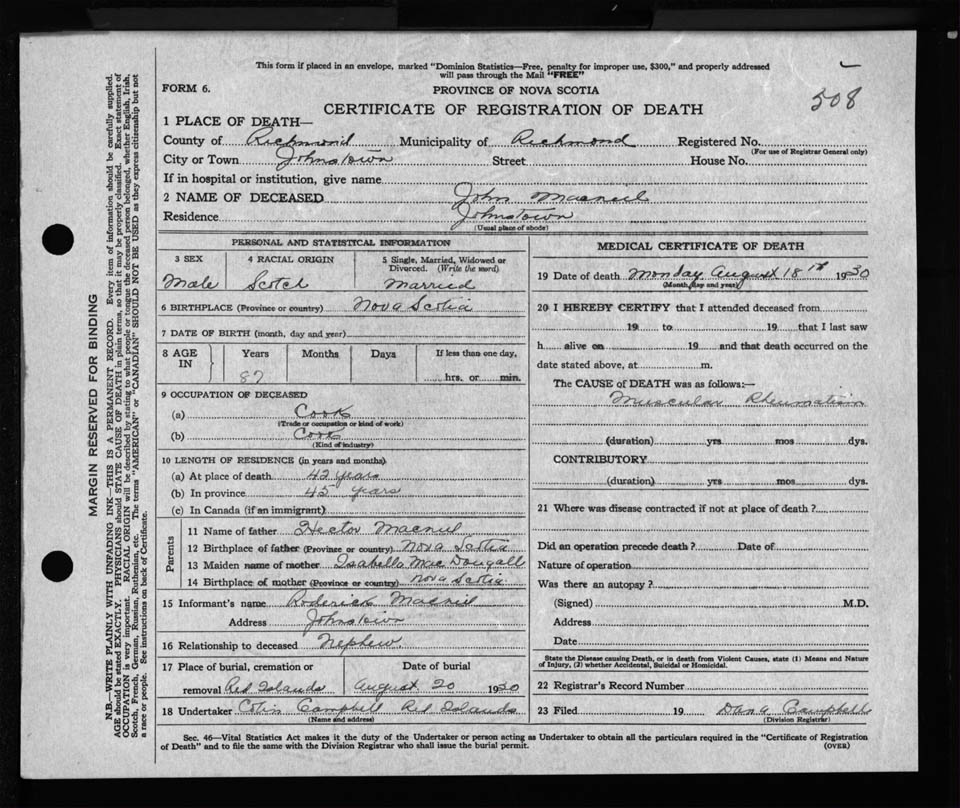 This form if placed in an envelope, marked "Dominion Statistics—Free, penalty for improper use, $300," and properly addressed
will pass through the Mail "FREE"
FORM 6.
PROVINCE OF NOVA SCOTIA
508
CERTIFICATE OF REGISTRATION OF DEATH
1 PLACE OF DEATH—
County of Richmond Municipality of Richmond Registered No.
(For use of Registrar General only)
City or Town Johnstown Street House No.
If in hospital or institution, give name
2 NAME OF DECEASED John Macneil
Residence Johnstown
(Usual place of abode)
PERSONAL AND STATISTICAL INFORMATION
3 SEX 4 RACIAL ORIGIN 5 Single, Married, Widowed or Divorced. (Write the word)
Male Scotch Married
6 BIRTHPLACE (Province or country) Nova Scotia
7 DATE OF BIRTH (month, day and year)
8 AGE IN Years Months Days If less than one day,
87 hrs. or min.
9 OCCUPATION OF DECEASED
(a) Cook
(Trade or occupation or kind of work)
(b) Cook
(Kind of industry)
10 LENGTH OF RESIDENCE (in years and months)
(a) At place of death 42 years
(b) In province 45 years
(c) In Canada (if an immigrant)
Parents
11 Name of father Hector Macneil
12 Birthplace of father (Province or country) Nova Scotia
13 Maiden name of mother Isabella Mac Dougall
14 Birthplace of mother (Province or country) Nova Scotia
15 Informant's name Roderick Macneil
Address Johnstown
16 Relationship to deceased Nephew
17 Place of burial, cremation or removal Red Islands Date of burial August 20 1930
18 Undertaker Colin Campbell Red Islands
(Name and address)
MEDICAL CERTIFICATE OF DEATH
19 Date of death Monday August 18th 1930
(Month, day and year)
20 I HEREBY CERTIFY that I attended deceased from
19 to 19 that I last saw
h alive on 19 and that death occurred on the
date stated above, at m.
The CAUSE of DEATH was as follows:—
Muscular Rheumatism
(duration) yrs mos dys.
CONTRIBUTORY
(duration) yrs mos dys.
21 Where was disease contracted if not at place of death?
Did an operation precede death? Date of
Nature of operation
Was there an autopsy?
(Signed) M.D.
Address
Date
State the Disease causing Death, or in death from Violent Causes, state (1) Means and Nature
of Injury, (2) whether Accidental, Suicidal or Homicidal.
22 Registrar's Record Number
23 Filed 19 Dan A Campbell
(Division Registrar)
Sec. 46—Vital Statistics Act makes it the duty of the Undertaker or person acting as Undertaker to obtain all the particulars required in the "Certificate of Registration
of Death" and to file the same with the Division Registrar who shall issue the burial permit.
(OVER)
MARGIN RESERVED FOR BINDING
N.B.—WRITE PLAINLY WITH UNFADING INK—THIS IS A PERMANENT RECORD. Every item of information should be carefully supplied.
AGE should be stated EXACTLY. PHYSICIANS should STATE CAUSE OF DEATH in plain terms, so that it may be properly classified. Exact statement of
OCCUPATION is very important. RACIAL ORIGIN will be described by stating to what people or tongue the deceased person belonged, whether English, Irish,
Scotch, French, German, Russian, Ruthenian, etc. The terms "AMERICAN" or "CANADIAN" SHOULD NOT BE USED as they express citizenship but not
a race or people. See instructions on back of Certificate.